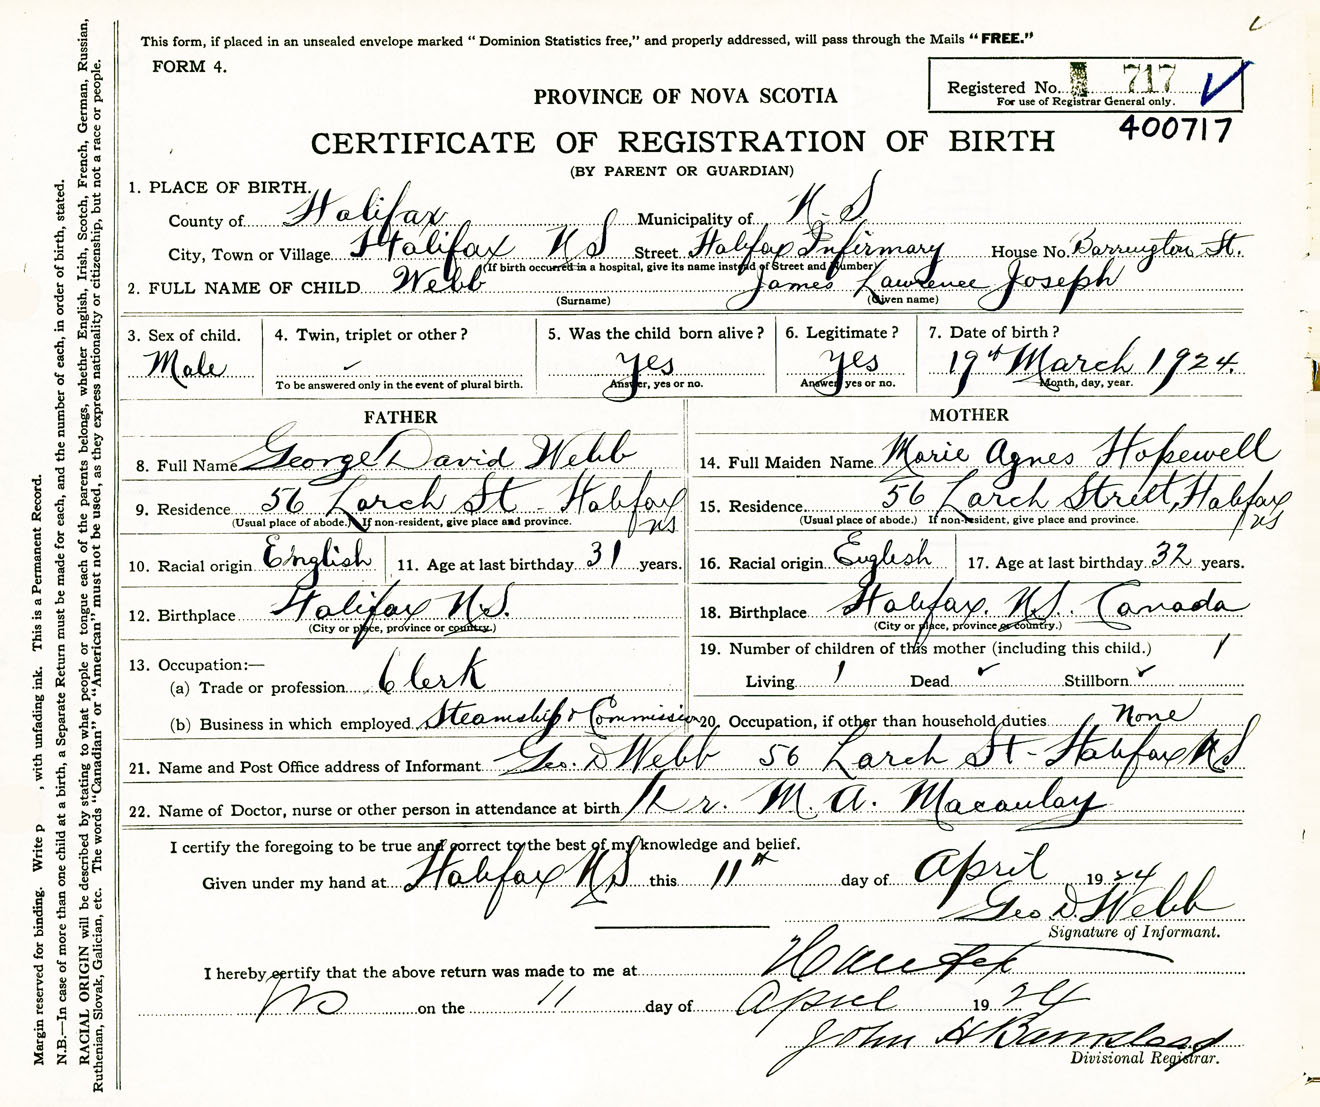 This form, if placed in an unsealed envelope marked “ Dominion Statistics free,” and properly addressed, will pass through the Mails “ FREE.”
FORM 4.
Registered No. 717
For use of Registrar General only.
400717
PROVINCE OF NOVA SCOTIA
CERTIFICATE OF REGISTRATION OF BIRTH
(BY PARENT OR GUARDIAN)
1. PLACE OF BIRTH.
County of Halifax Municipality of N. S
City, Town or Village Halifax N S Street Halifax Infirmary House No. Barrington St.
(If birth occurred in a hospital, give its name instead of Street and Number)
2. FULL NAME OF CHILD Webb James Lawrence Joseph
(Surname) (Given name)
3. Sex of child. 4. Twin, triplet or other ? 5. Was the child born alive ? 6. Legitimate ? 7. Date of birth ?
Male yes yes 19th March 1924.
To be answered only in the event of plural birth. Answer, yes or no. Answer, yes or no. Month, day, year.
FATHER MOTHER
8. Full Name George David Webb 14. Full Maiden Name Marie Agnes Hopewell
9. Residence 56 Larch St - Halifax NS 15. Residence 56 Larch Street, Halifax NS
(Usual place of abode.) If non-resident, give place and province. (Usual place of abode.) If non-resident, give place and province.
10. Racial origin English 11. Age at last birthday 31 years. 16. Racial origin English 17. Age at last birthday 32 years.
12. Birthplace Halifax N.S. 18. Birthplace Halifax. N.S. Canada
(City or place, province or country.) (City or place, province or country.)
13. Occupation:— 19. Number of children of this mother (including this child.) 1
(a) Trade or profession Clerk Living 1 Dead Stillborn
(b) Business in which employed Steamship & Commission 20. Occupation, if other than household duties None
21. Name and Post Office address of Informant Geo. D Webb 56 Larch St - Halifax N S
22. Name of Doctor, nurse or other person in attendance at birth Dr. M. A. Macaulay
I certify the foregoing to be true and correct to the best of my knowledge and belief.
Given under my hand at Halifax N S this 11th day of April 1924
Geo D. Webb
Signature of Informant.
I hereby certify that the above return was made to me at Halifax
NS on the 11 day of April 1924
John H Barnstead
Divisional Registrar.
Margin reserved for binding. Write p , with unfading ink. This is a Permanent Record.
N.B.—In case of more than one child at a birth, a Separate Return must be made for each, and the number of each, in order of birth, stated.
RACIAL ORIGIN will be described by stating to what people or tongue each of the parents belongs, whether English, Irish, Scotch, French, German, Russian,
Ruthenian, Slovak, Galician, etc. The words “Canadian” or “American” must not be used, as they express nationality or citizenship, but not a race or people.